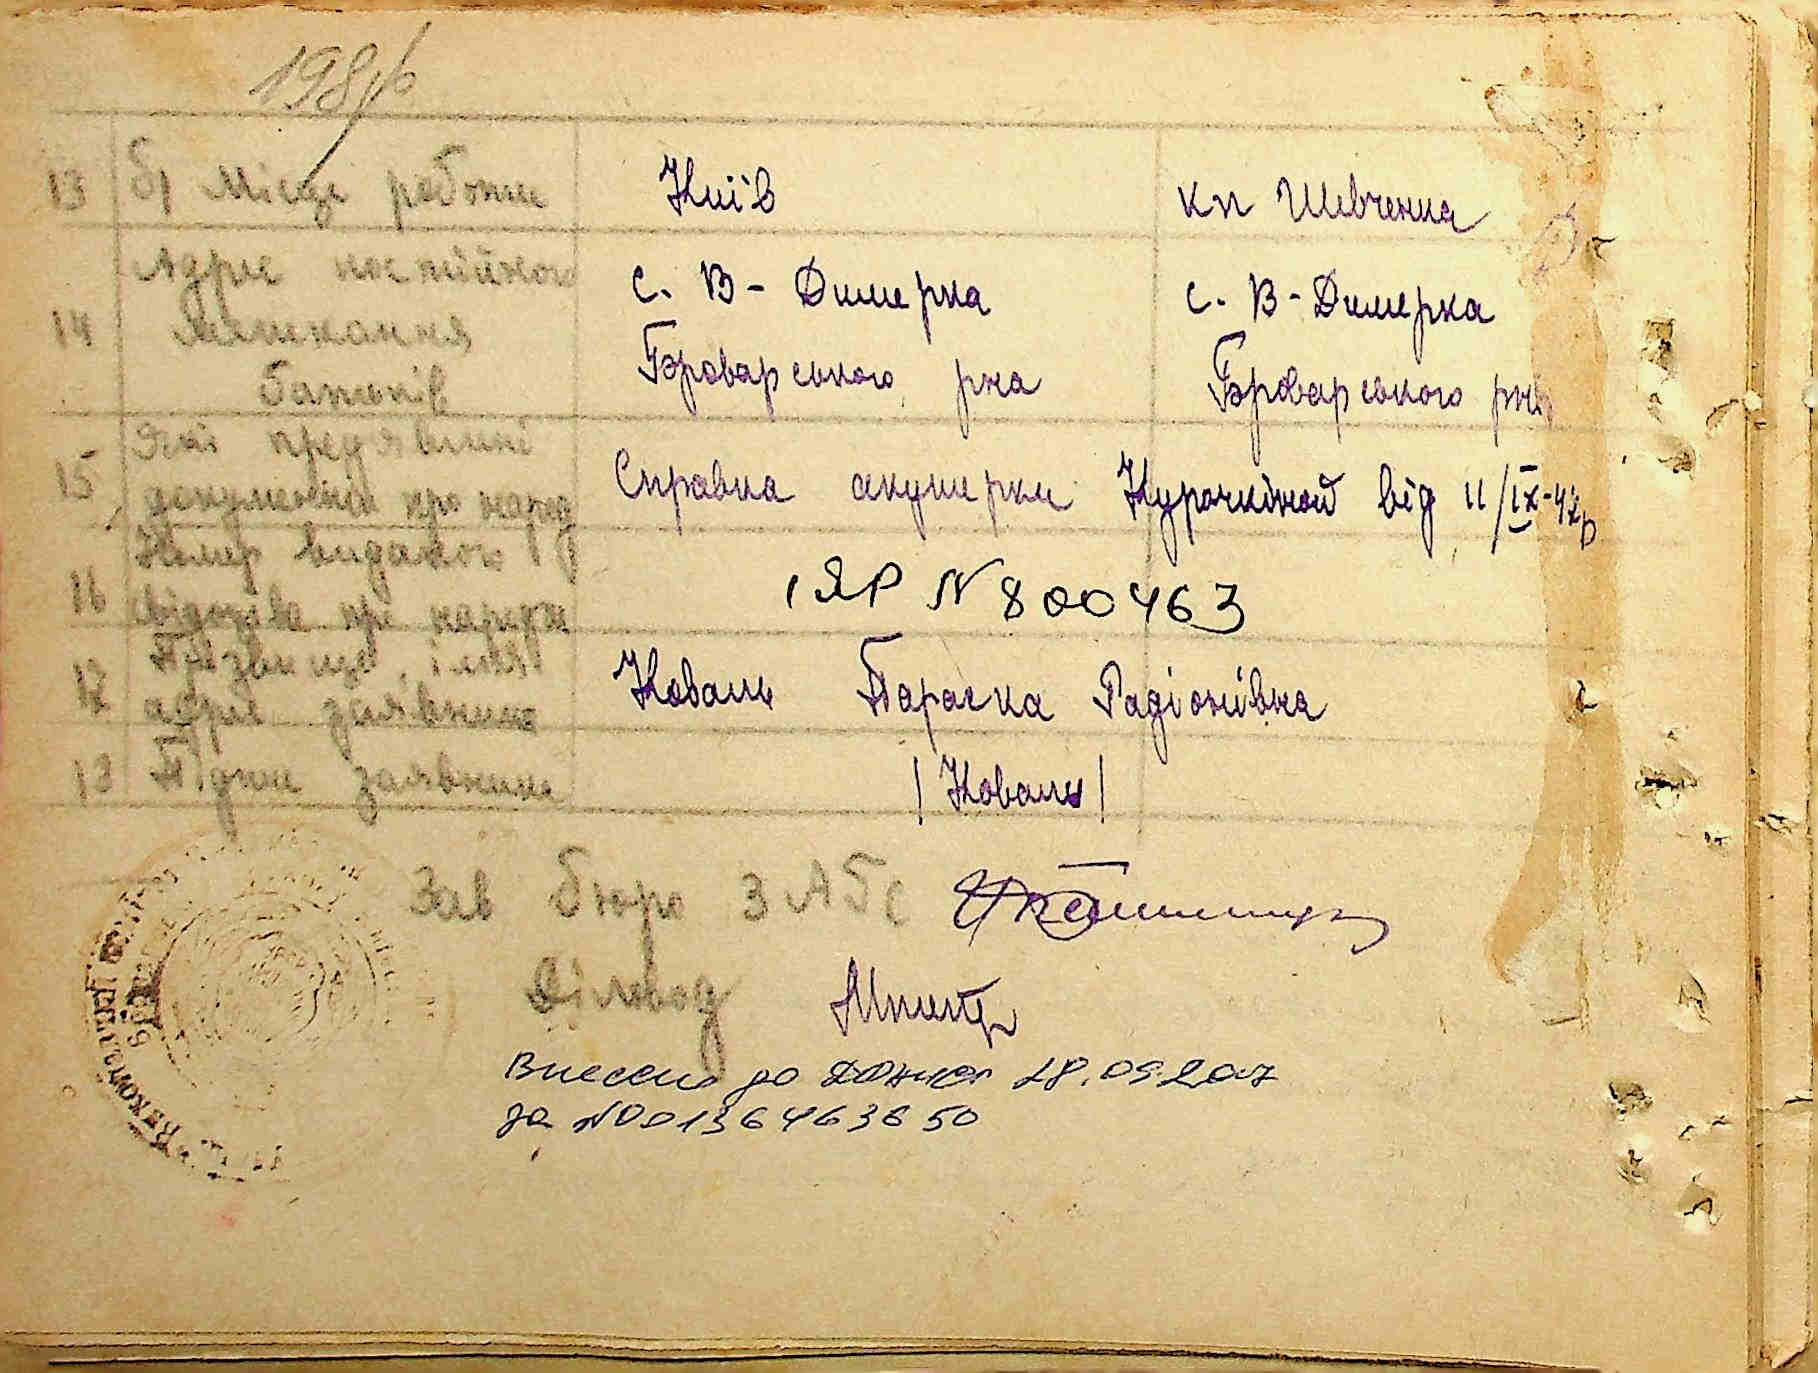 13 б) Місце роботи Київ кп Шевченка
Адрес постійного
14 мешкання с. В-Димерка с. В-Димерка
батьків Броварського рна Броварського рна
Які предявлині
15 документи про народ Справка акушерки Курочкіной від 11/IX-42р
Номер виданого
16 свідоцтва про народж І ЯР N 800463
Прізвище, імя
17 адрес заявника Коваль Параска Радіонівна
18 Підпис заявника |Коваль|
Зав бюро ЗАГС
Діловод
Внесено до 28.09.2007
за N00136463650